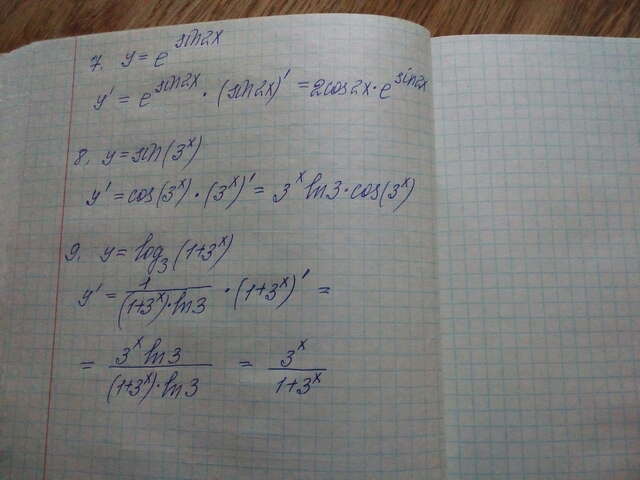 7. y = e^sin2x
y' = e^sin2x · (sin2x)' = 2cos2x · e^sin2x
8. y = sin(3^x)
y' = cos(3^x) · (3^x)' = 3^x ln3 · cos(3^x)
9. y = log₃(1+3^x)
y' = 1/((1+3^x)·ln3) · (1+3^x)' =
= 3^x ln3/((1+3^x)·ln3) = 3^x/(1+3^x)